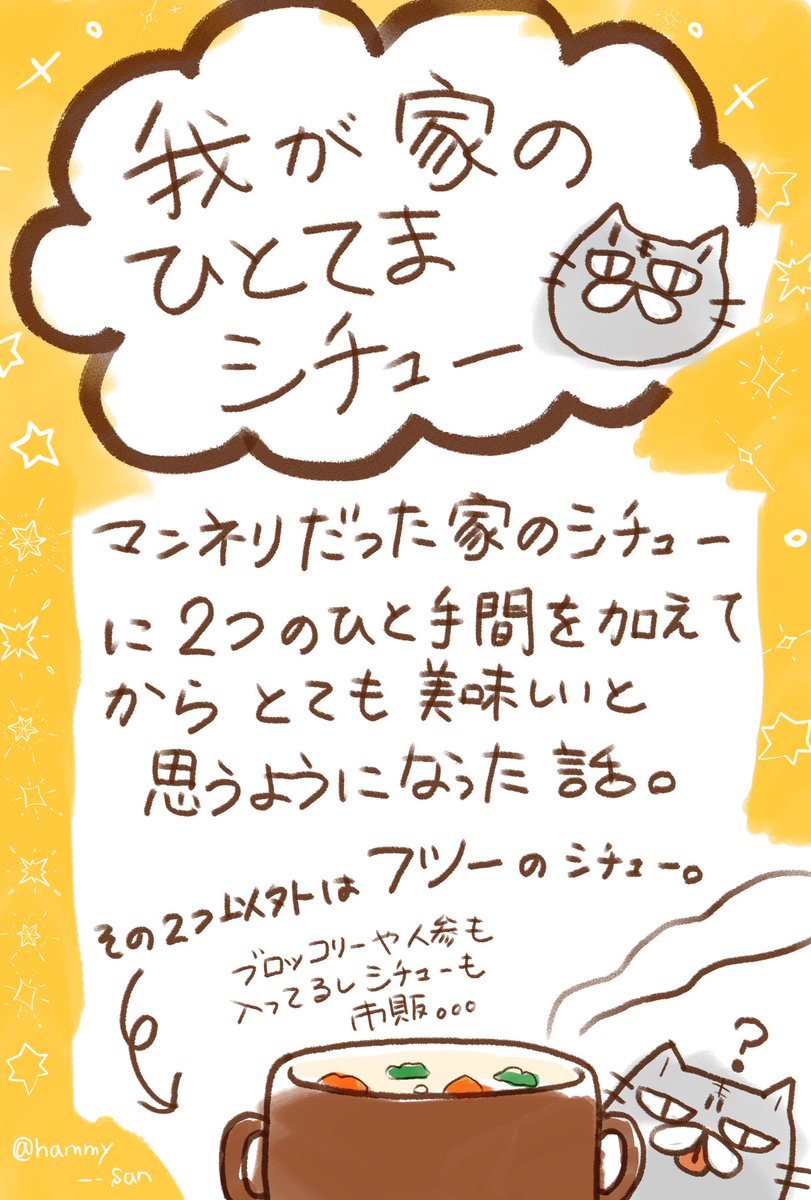 我が家の
ひとてま
シチュー
マンネリだった家のシチュー
に2つのひと手間を加えて
からとても美味しいと
思うようになった話。
その2つ以外はフツーのシチュー。
ブロッコリーや人参も
入ってるしシチューも
市販。。。
?
@hammy
--san